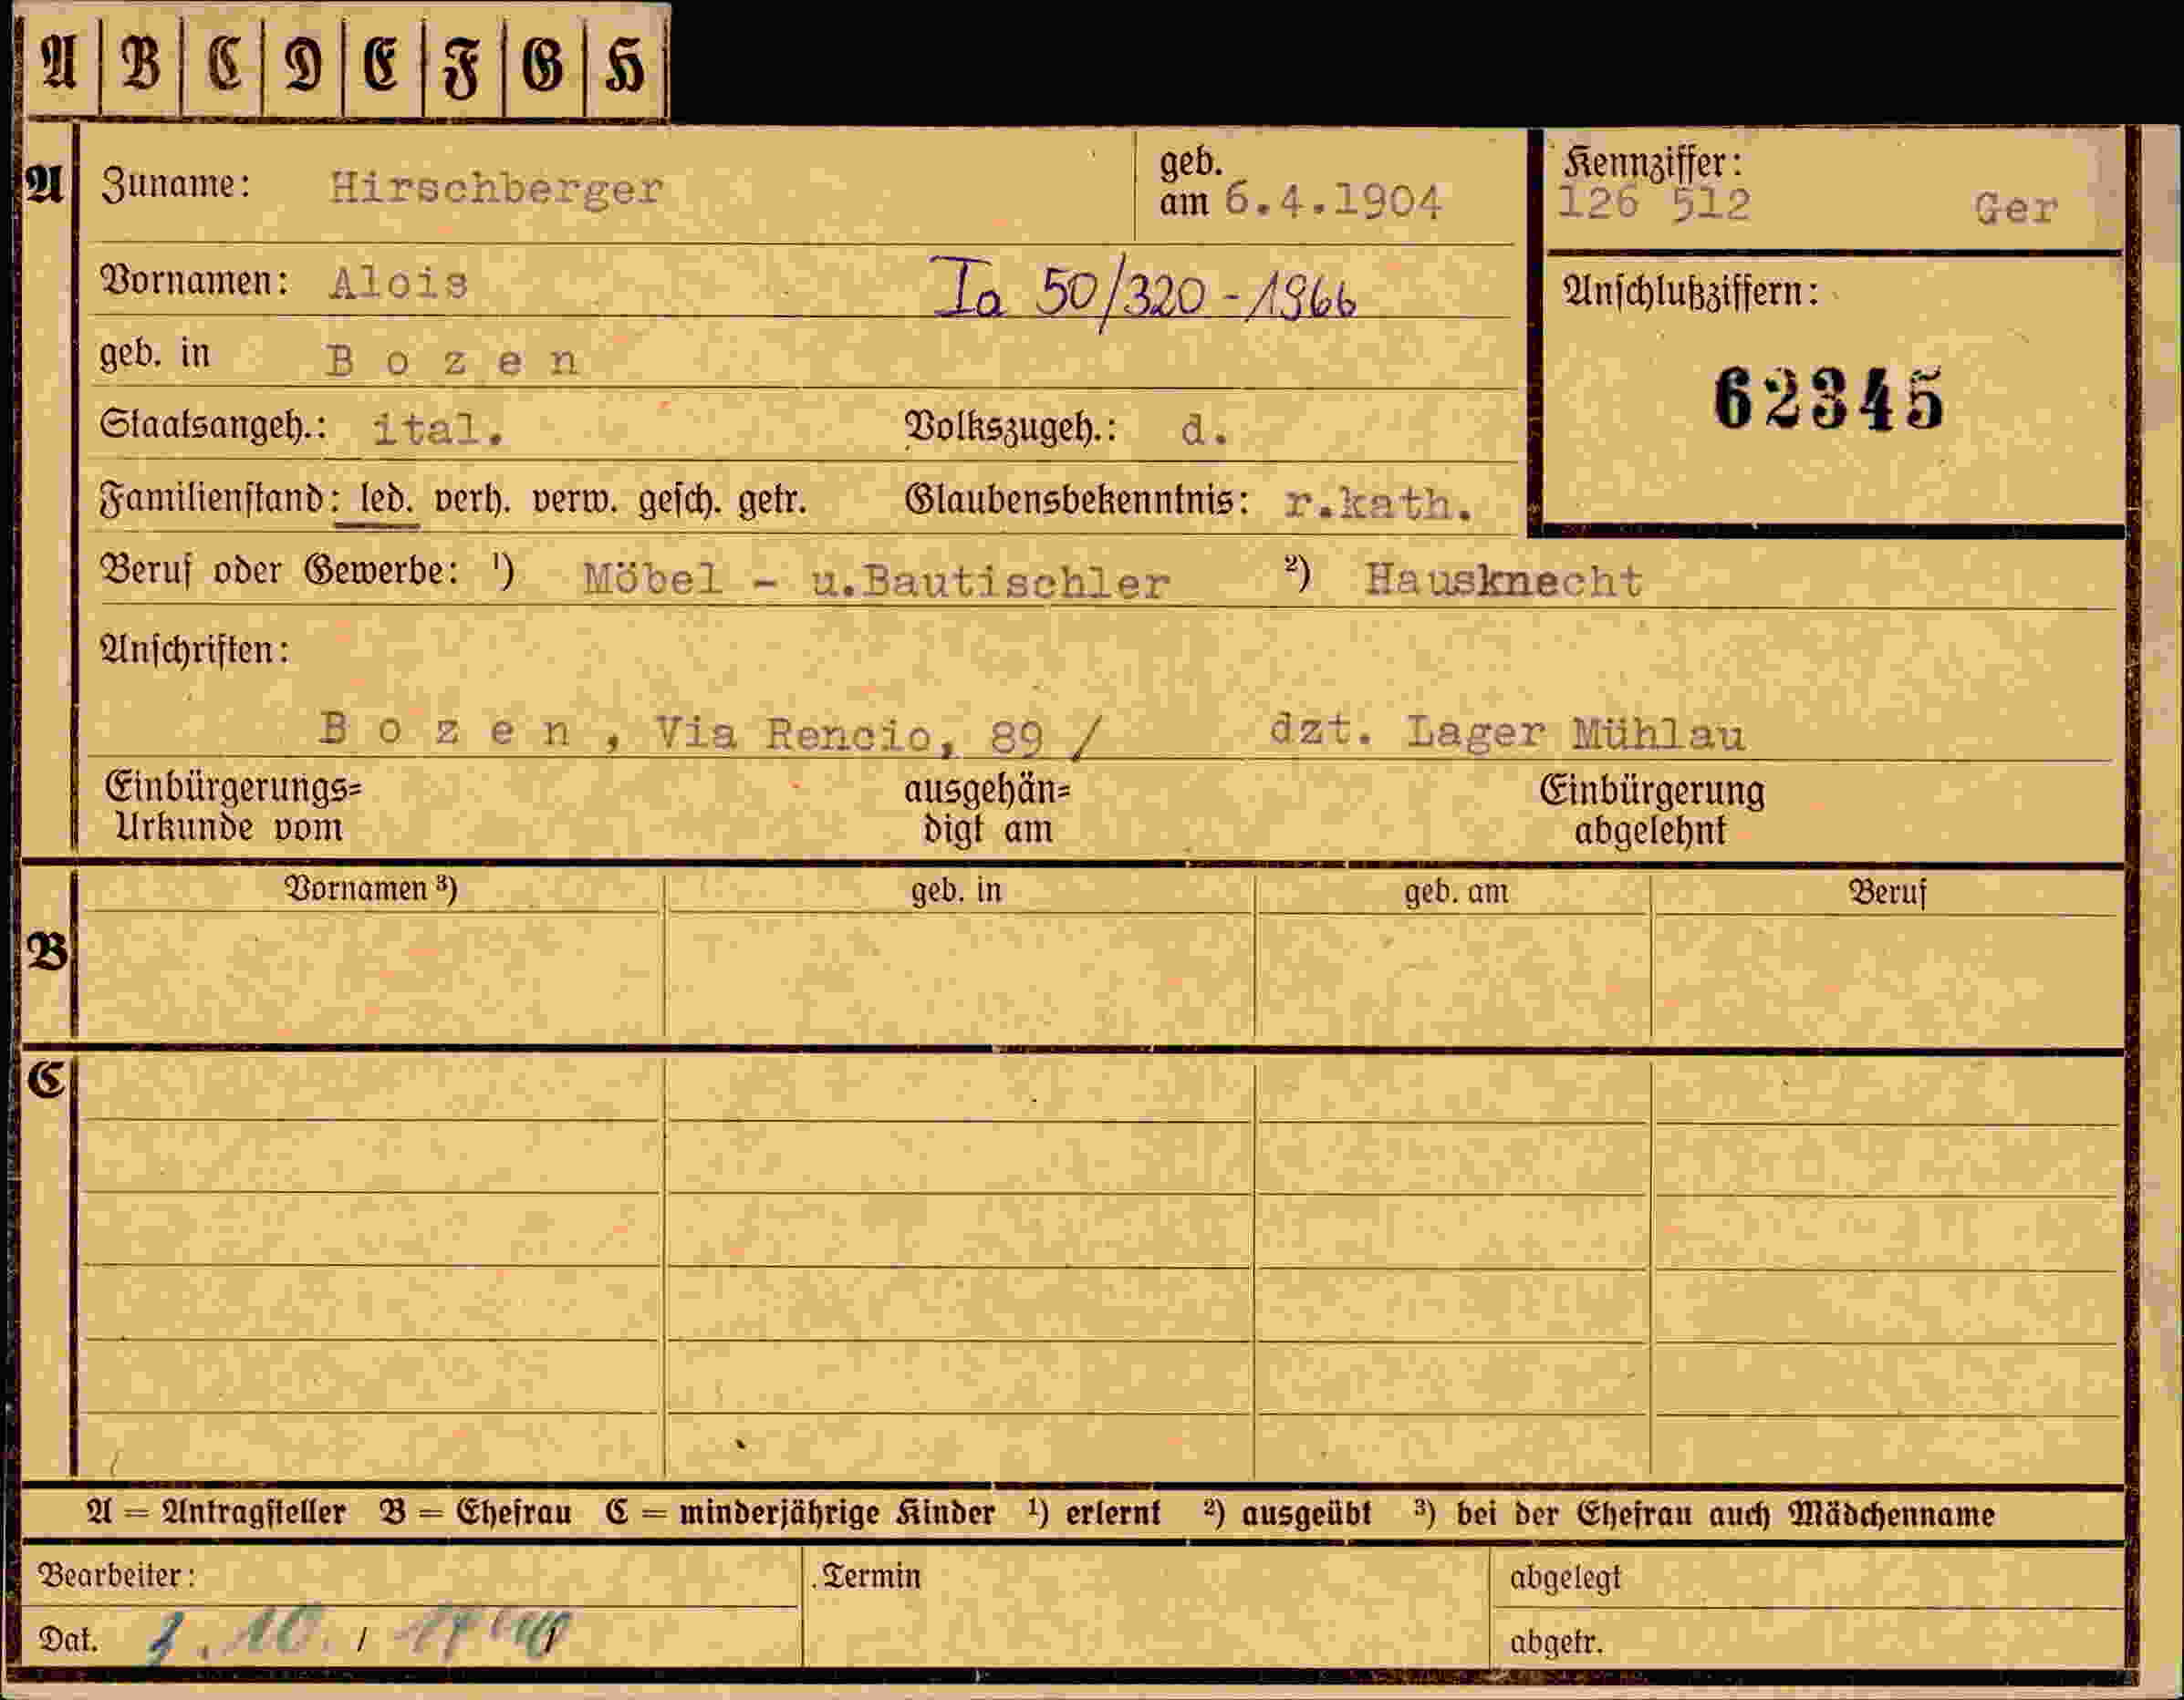 A B C D E F G H
A Zuname: Hirschberger geb. am 6.4.1904 Kennziffer: 126 512 Ger
Vornamen: Alois Ia 50/320-1966 Anschlußziffern:
geb. in Bozen 62345
Staatsangeh.: ital. Volkszugeh.: d.
Familienstand: led. verh. verw. gesch. getr. Glaubensbekenntnis: r.kath.
Beruf oder Gewerbe: ¹) Möbel - u.Bautischler ²) Hausknecht
Anschriften:
Bozen, Via Rencio, 89 / dzt. Lager Mühlau
Einbürgerungs= ausgehän= Einbürgerung
Urkunde vom digt am abgelehnt
Vornamen ³) geb. in geb. am Beruf
B
C
A = Antragsteller B = Ehefrau C = minderjährige Kinder ¹) erlernt ²) ausgeübt ³) bei der Ehefrau auch Mädchenname
Bearbeiter: Termin abgelegt
Dat. abgetr.